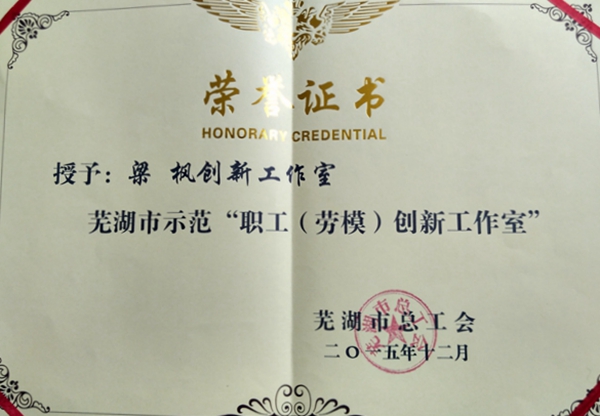 荣誉证书
HONORARY CREDENTIAL
授予：梁 枫创新工作室
芜湖市示范“职工（劳模）创新工作室”
芜湖市总工会
二〇一五年十二月
芜湖市总工会